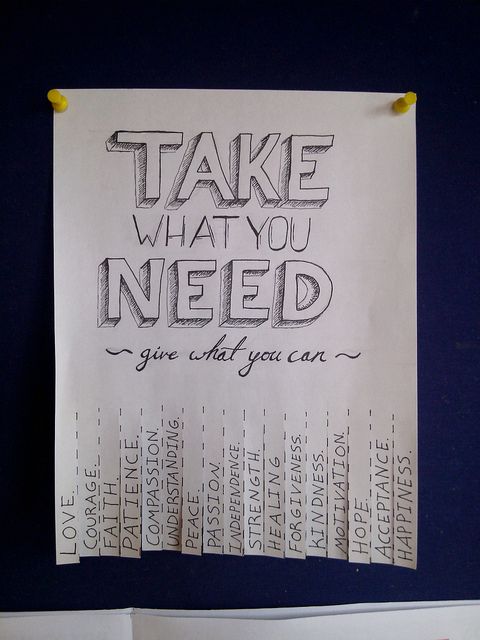 TAKE
WHAT YOU
NEED
~ give what you can ~
LOVE.
COURAGE.
FAITH.
PATIENCE.
COMPASSION.
UNDERSTANDING.
PEACE.
PASSION.
INDEPENDENCE.
STRENGTH.
HEALING
FORGIVENESS.
KINDNESS.
MOTIVATION.
HOPE.
ACCEPTANCE.
HAPPINESS.